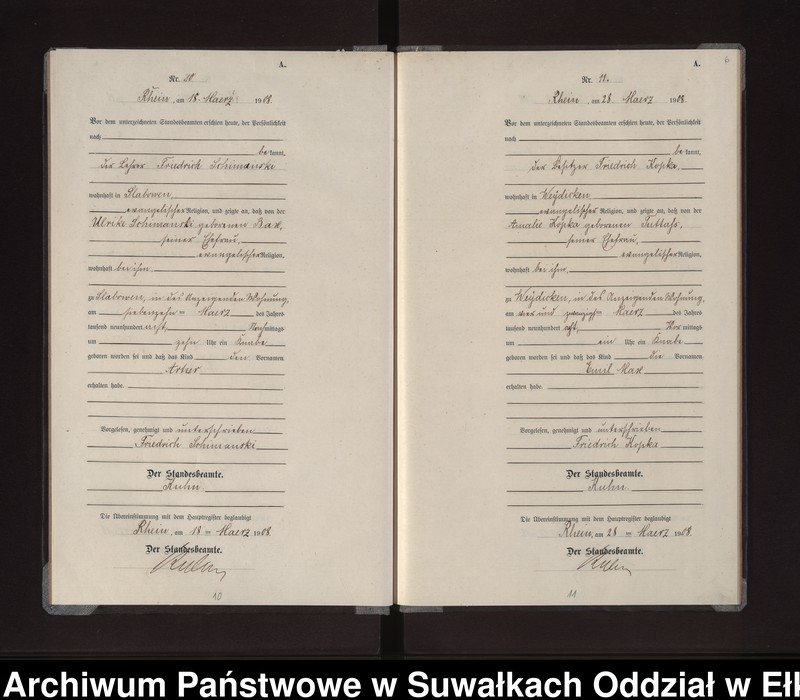 A.
Nr. 20
Rhein, am 18. Maerz 1908.
Vor dem unterzeichneten Standesbeamten erschien heute, der Persönlichkeit
nach
be kannt,
der Lehrer Friedrich Schimanski
wohnhaft in Slabowen,
evangelischer Religion, und zeigte an, daß von der
Ulrike Schimanski geborenen
seiner Ehefrau,
evangelischer Religion,
wohnhaft bei ihm
zu Slabowen, in des Anzeigenden Wohnung,
am siebenzehn ten Maerz des Jahres
tausend neunhundert acht, Nach mittags
um zehn Uhr ein Knabe
geboren worden sei und daß das Kind den Vornamen
Artur
erhalten habe.
Vorgelesen, genehmigt und unterschrieben
Friedrich Schimanski
Der Standesbeamte.
Kuhn.
Die Übereinstimmung mit dem Hauptregister beglaubigt
Rhein, am 18 ten Maerz 1908.
Der Standesbeamte.
Kuhn
10
A.
6
Nr. 11.
Rhein, am 28. Maerz 1908.
Vor dem unterzeichneten Standesbeamten erschien heute, der Persönlichkeit
nach
be kannt,
der Besitzer Friedrich Kopka,
wohnhaft in Weydicken,
evangelischer Religion, und zeigte an, daß von der
Amalie Kopka geborenen
seiner Ehefrau,
evangelischer Religion,
wohnhaft bei ihm,
zu Weydicken, in des Anzeigenden Wohnung,
am vier und zwanzigsten Maerz des Jahres
tausend neunhundert acht, Vor mittags
um ein Uhr ein Knabe
geboren worden sei und daß das Kind die Vornamen
Emil Max
erhalten habe.
Vorgelesen, genehmigt und unterschrieben
Friedrich Kopka
Der Standesbeamte.
Kuhn.
Die Übereinstimmung mit dem Hauptregister beglaubigt
Rhein, am 28 ten Maerz 1908.
Der Standesbeamte.
Kuhn
11
Archiwum Państwowe w Suwałkach Oddział w Eł